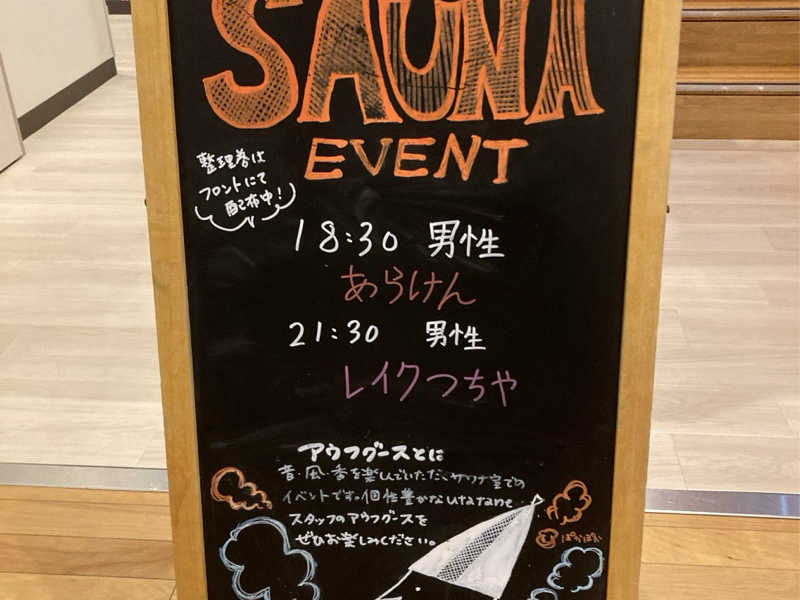 SAUNA
EVENT
整理券は
フロントにて
配布中!
18:30 男性
あらけん
21:30 男性
レイクつちや
アウフグースとは
音・風・香を楽しんでいただくサウナ室での
イベントです。個性豊かなutatane
スタッフのアウフグースを
ぜひお楽しみください。
ぽかぽか